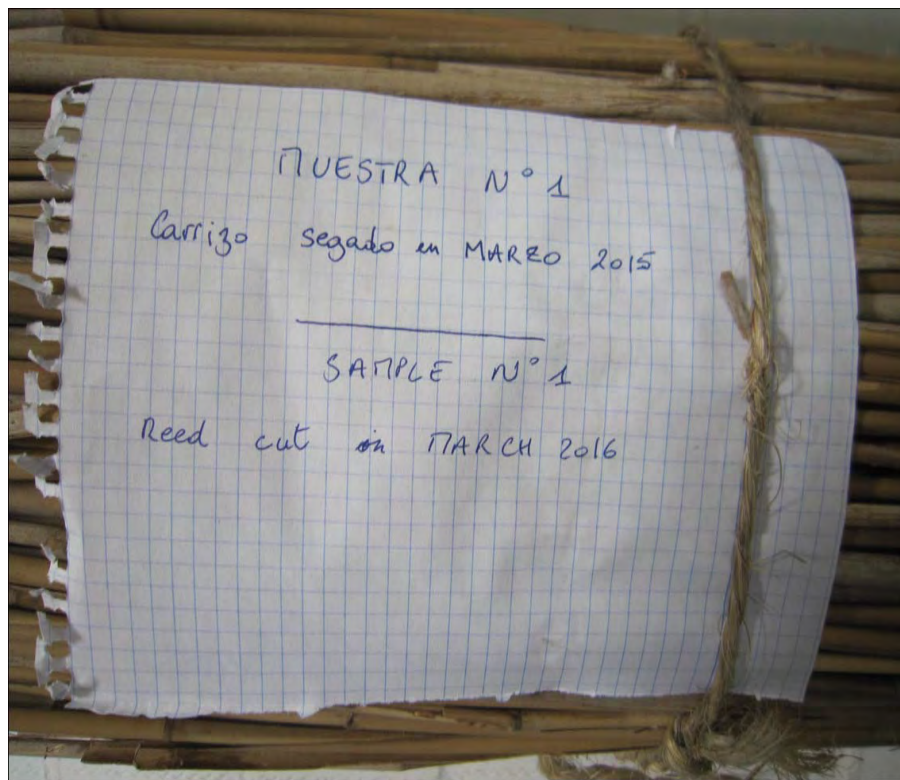 MUESTRA Nº 1
Carrizo segado en MARZO 2015
SAMPLE Nº 1
Reed cut in MARCH 2016